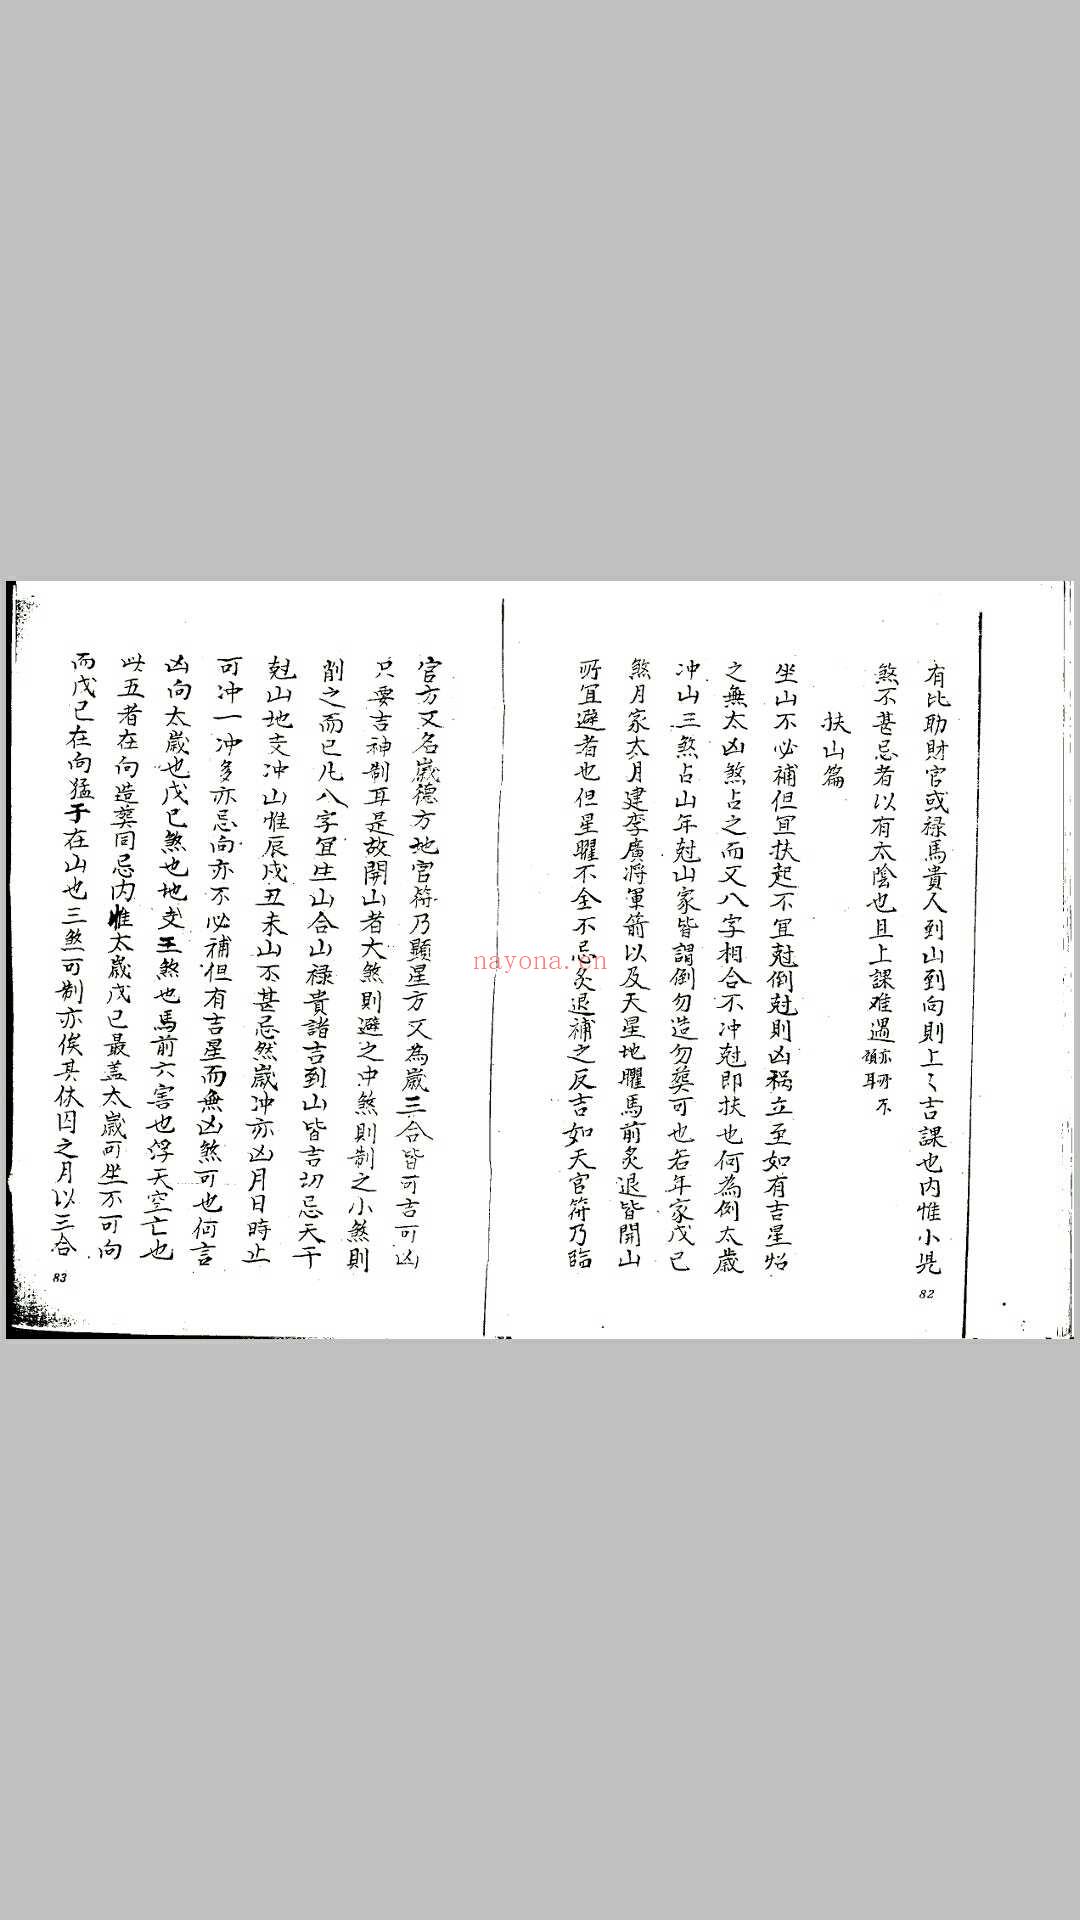 有比助財官或祿馬貴人到山到向則上〻吉課也內惟小児
煞不甚忌者以有太陰也且上課难遇亦所不
須耳
扶山篇
坐山不必補但宜扶起不宜尅倒尅則凶禍立至如有吉星炤
之無太凶煞占之而又八字相合不冲尅即扶也何為倒太歲
冲山三煞占山年尅山家皆謂倒勿造勿葬可也若年家戊已
煞月家太月建李廣將軍箭以及天星地曜馬前炙退皆開山
所宜避者也但星曜不全不忌炙退補之反吉如天官符乃臨
82
官方又名歲德方地官符乃顯星方又為歲三合皆可吉可凶
只要吉神制耳是故開山者大煞則避之中煞則制之小煞則
削之而已凢八字宜生山合山祿貴諸吉到山皆吉切忌天干
尅山地支冲山惟辰戍丑未山不甚忌然歲冲亦凶月日時止
可冲一冲多亦忌向亦不必補但有吉星而無凶煞可也何言
凶向太歲也戊已煞也地支王煞也馬前六害也浮天空亡也
此五者在向造葬同忌内惟太歲戊已最盖太歲可坐不可向
而戊已在向猛于在山也三煞可制亦俟其休囚之月以三合
83
nayona.cn